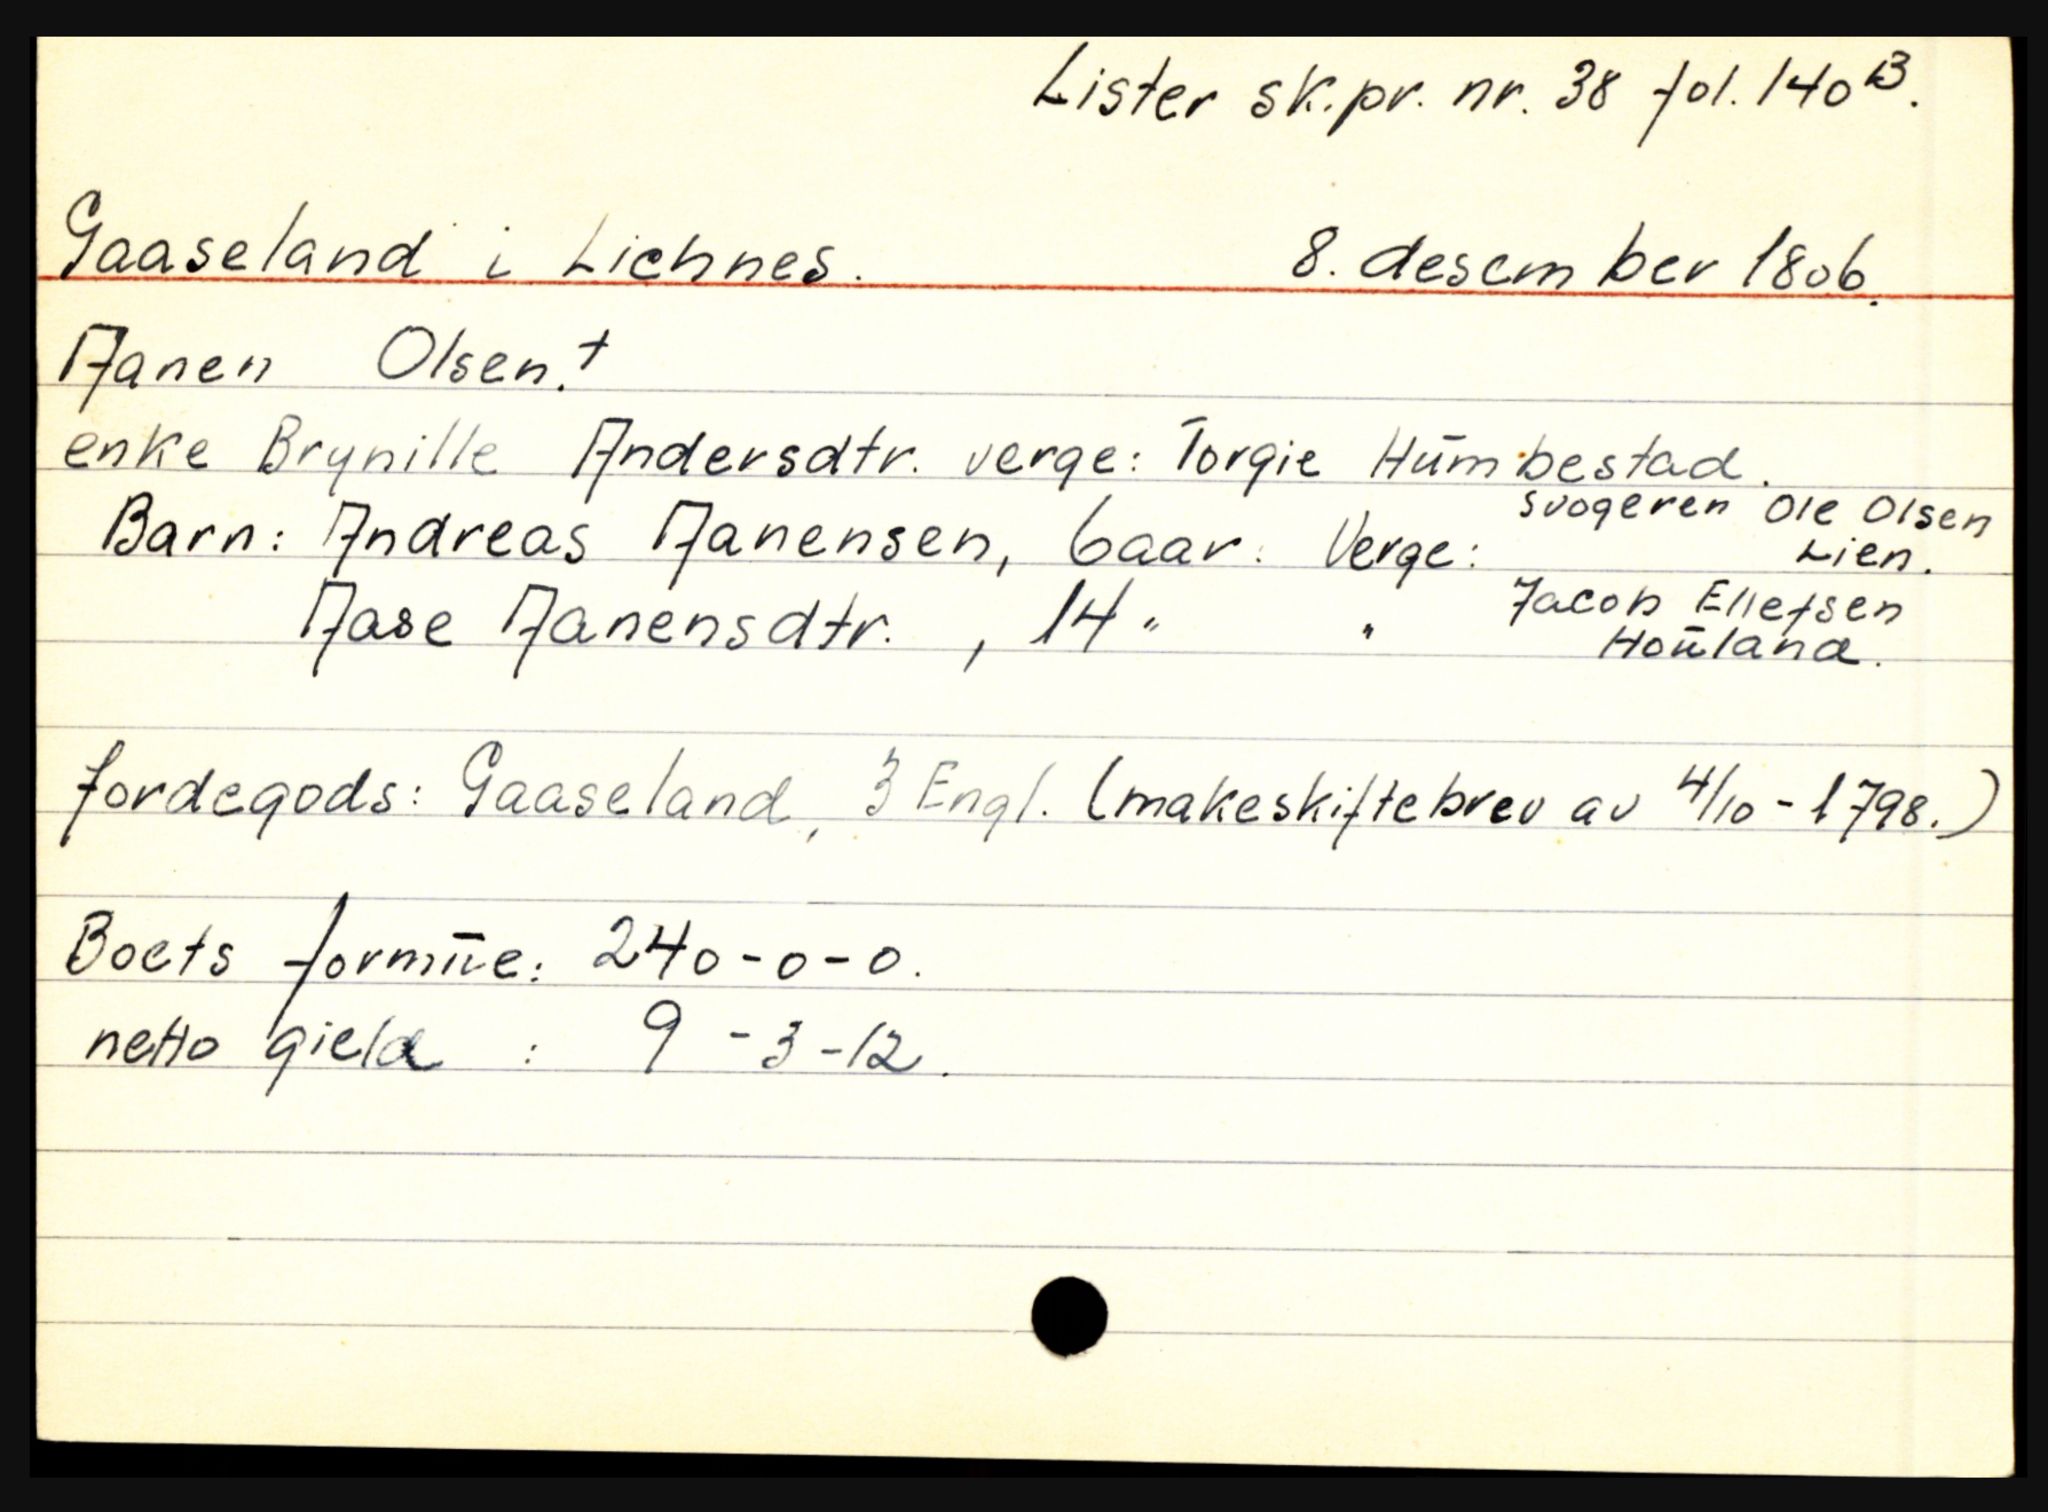 Lister sk.pr. nr. 38 fol. 140B.
Gaaseland i Liehnes. 8. desember 1806.
Aanen Olsen.†
enke Brynille Andersdtr. verge: Torgie Hūmbestad.
Barn: Andreas Aanensen, 6 aar. Verge: svogeren Ole Olsen Lien.
Aase Aanensdtr., 14 " " Jacob Ellefsen Hoūland.
Jordegods: Gaaseland, 3 Engl. (makeskiftebrev av 4/10-1798.)
Boets formūe: 240-0-0.
netto gield : 9-3-12.